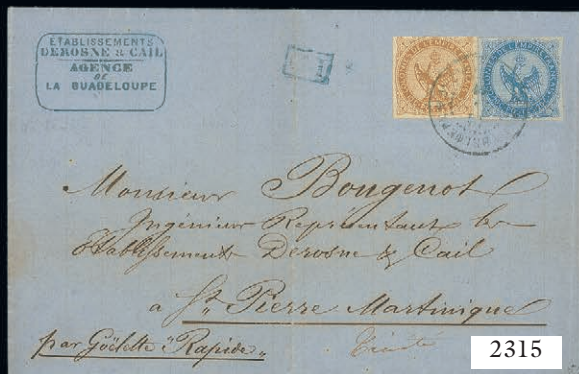 ÉTABLISSEMENTS
DEROSNE & CAIL
AGENCE
DE
LA GUADELOUPE
Monsieur Bougenot
Ingénieur Représentant les
Etablissements Derosne & Cail
à St Pierre Martinique
par Goëlette "Rapide"
2315